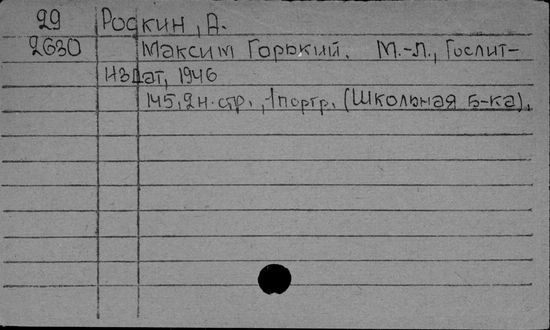 29 Роскин, А.
2630 Максим Горький. М.-Л., Гослит-
издат, 1946
145, 2 н. стр., 1 портр. (Школьная б-ка).